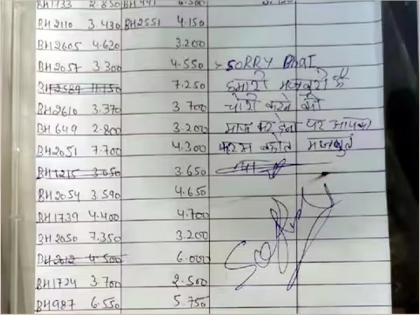 BH1733 2.850 BH991 6.500
BH2110 3.430 BH2551 4.150
BH2605 4.620 3.200
BH2057 3.300 4.550 SORRY Bhai
BH2589 11.150 7.250 हमारी मजबूरी है
BH2610 3.370 3.700 चोरी करने की
BH649 2.800 3.200 माफ कर देना पर
BH2051 7.700 4.300
BH1215 3.650 3.650
BH2054 3.590 4.650
BH1739 4.400 4.700
BH2050 7.350 3.200
BH2012 4.500 6.000
BH1724 3.700 2.500
BH987 6.550 5.750